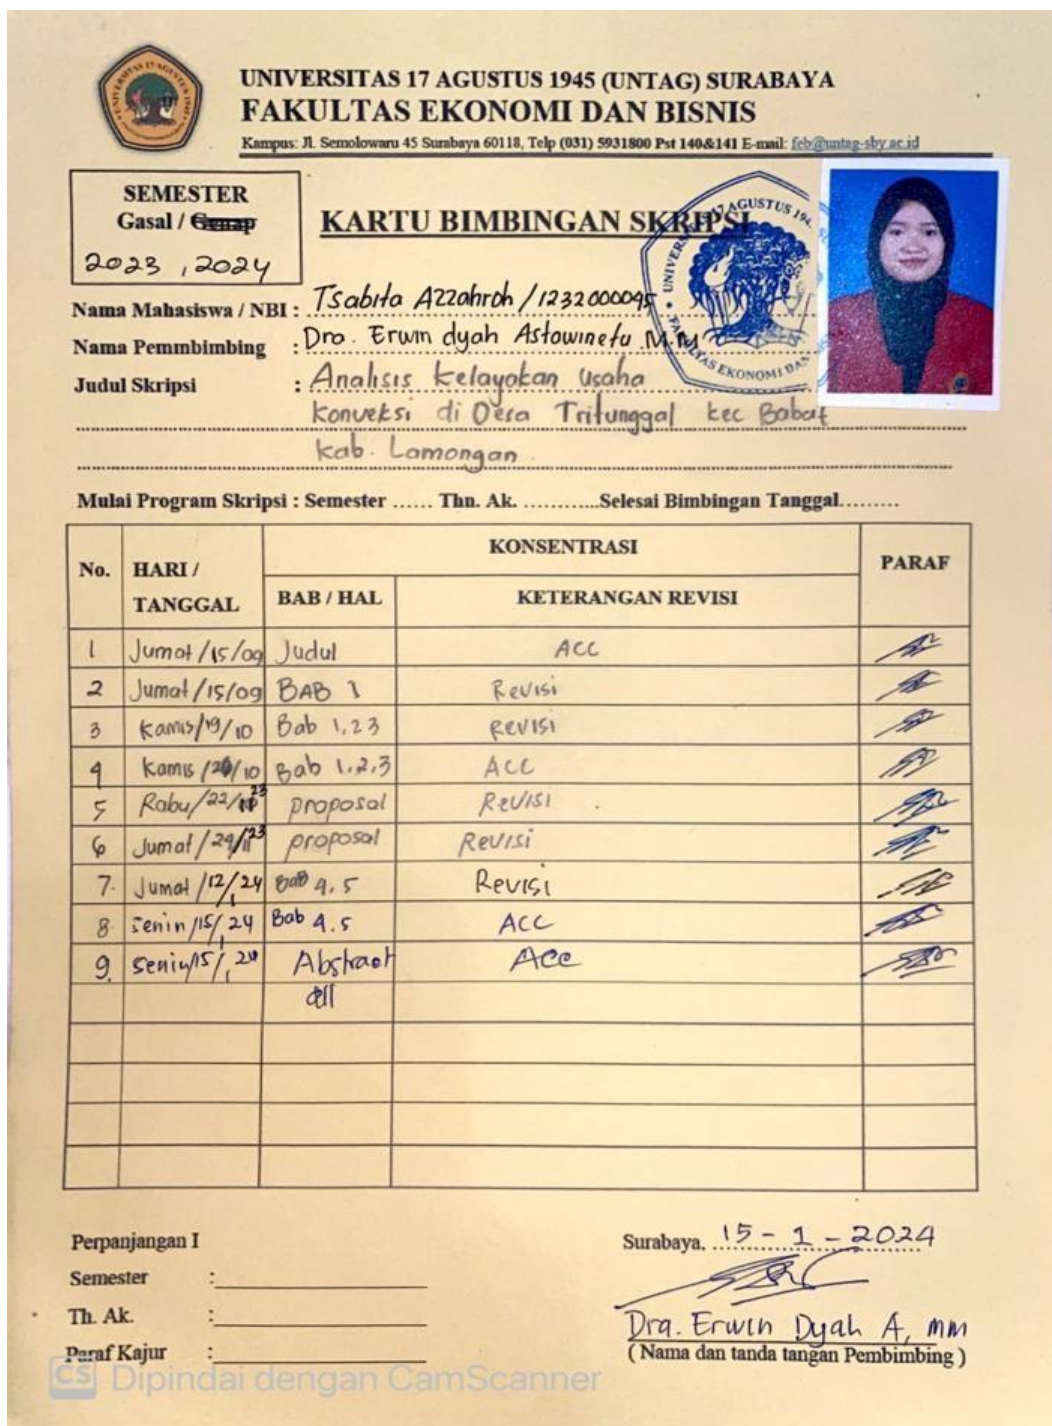 UNIVERSITAS 17 AGUSTUS 1945 (UNTAG) SURABAYA
FAKULTAS EKONOMI DAN BISNIS
Kampus: Jl. Semolowaru 45 Surabaya 60118, Telp (031) 5931800 Pst 140&141 E-mail: feb@untag-sby.ac.id
SEMESTER
Gasal / Genap
2023 , 2024
KARTU BIMBINGAN SKRIPSI
Nama Mahasiswa / NBI : Tsabita Azzahroh / 1232000095
Nama Pemmbimbing : Dra. Erwin dyah Astawinetu M.M
Judul Skripsi : Analisis kelayakan Usaha
konveksi di Desa Tritunggal kec Babat
kab. Lamongan.
Mulai Program Skripsi : Semester ...... Thn. Ak. ............Selesai Bimbingan Tanggal.........
No. HARI / TANGGAL KONSENTRASI PARAF
BAB / HAL KETERANGAN REVISI
1 Jumat/15/09 Judul ACC
2 Jumat/15/09 BAB 1 Revisi
3 Kamis/19/10 Bab 1,23 Revisi
4 Kamis /26/10 Bab 1.2,3 ACC
5 Rabu/22/11 23 proposal Revisi
6 Jumat/24/11 23 proposal Revisi
7. Jumat /12/1 24 Bab 4.5 Revisi
8. Senin /15/1 24 Bab 4.5 ACC
9. Senin/15/1 24 Abstract dll Acc
Perpanjangan I
Semester :
Th. Ak. :
Paraf Kajur :
Surabaya, 15 - 1 - 2024
Dra. Erwin Dyah A, MM
( Nama dan tanda tangan Pembimbing )
CS Dipindai dengan CamScanner